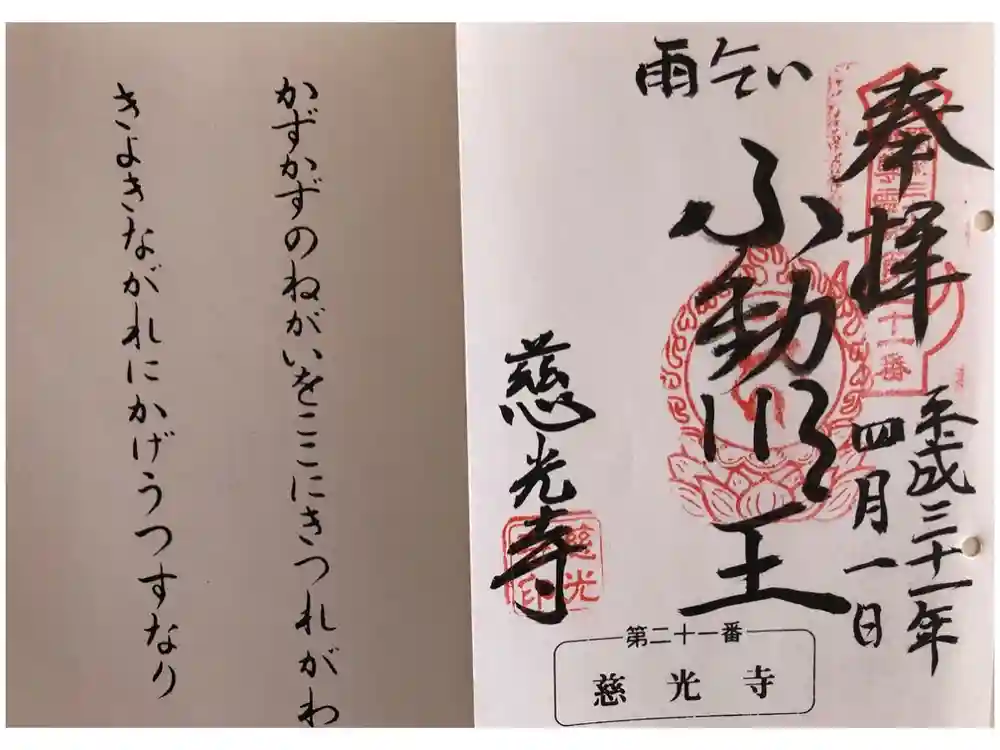 奉拝
平成三十一年
四月一日
雨乞い
不動明王
慈光寺
慈光
印
十一番
第二十一番
慈光寺
かずかずのねがいをここにきつれがわ
きよきながれにかげうつすなり